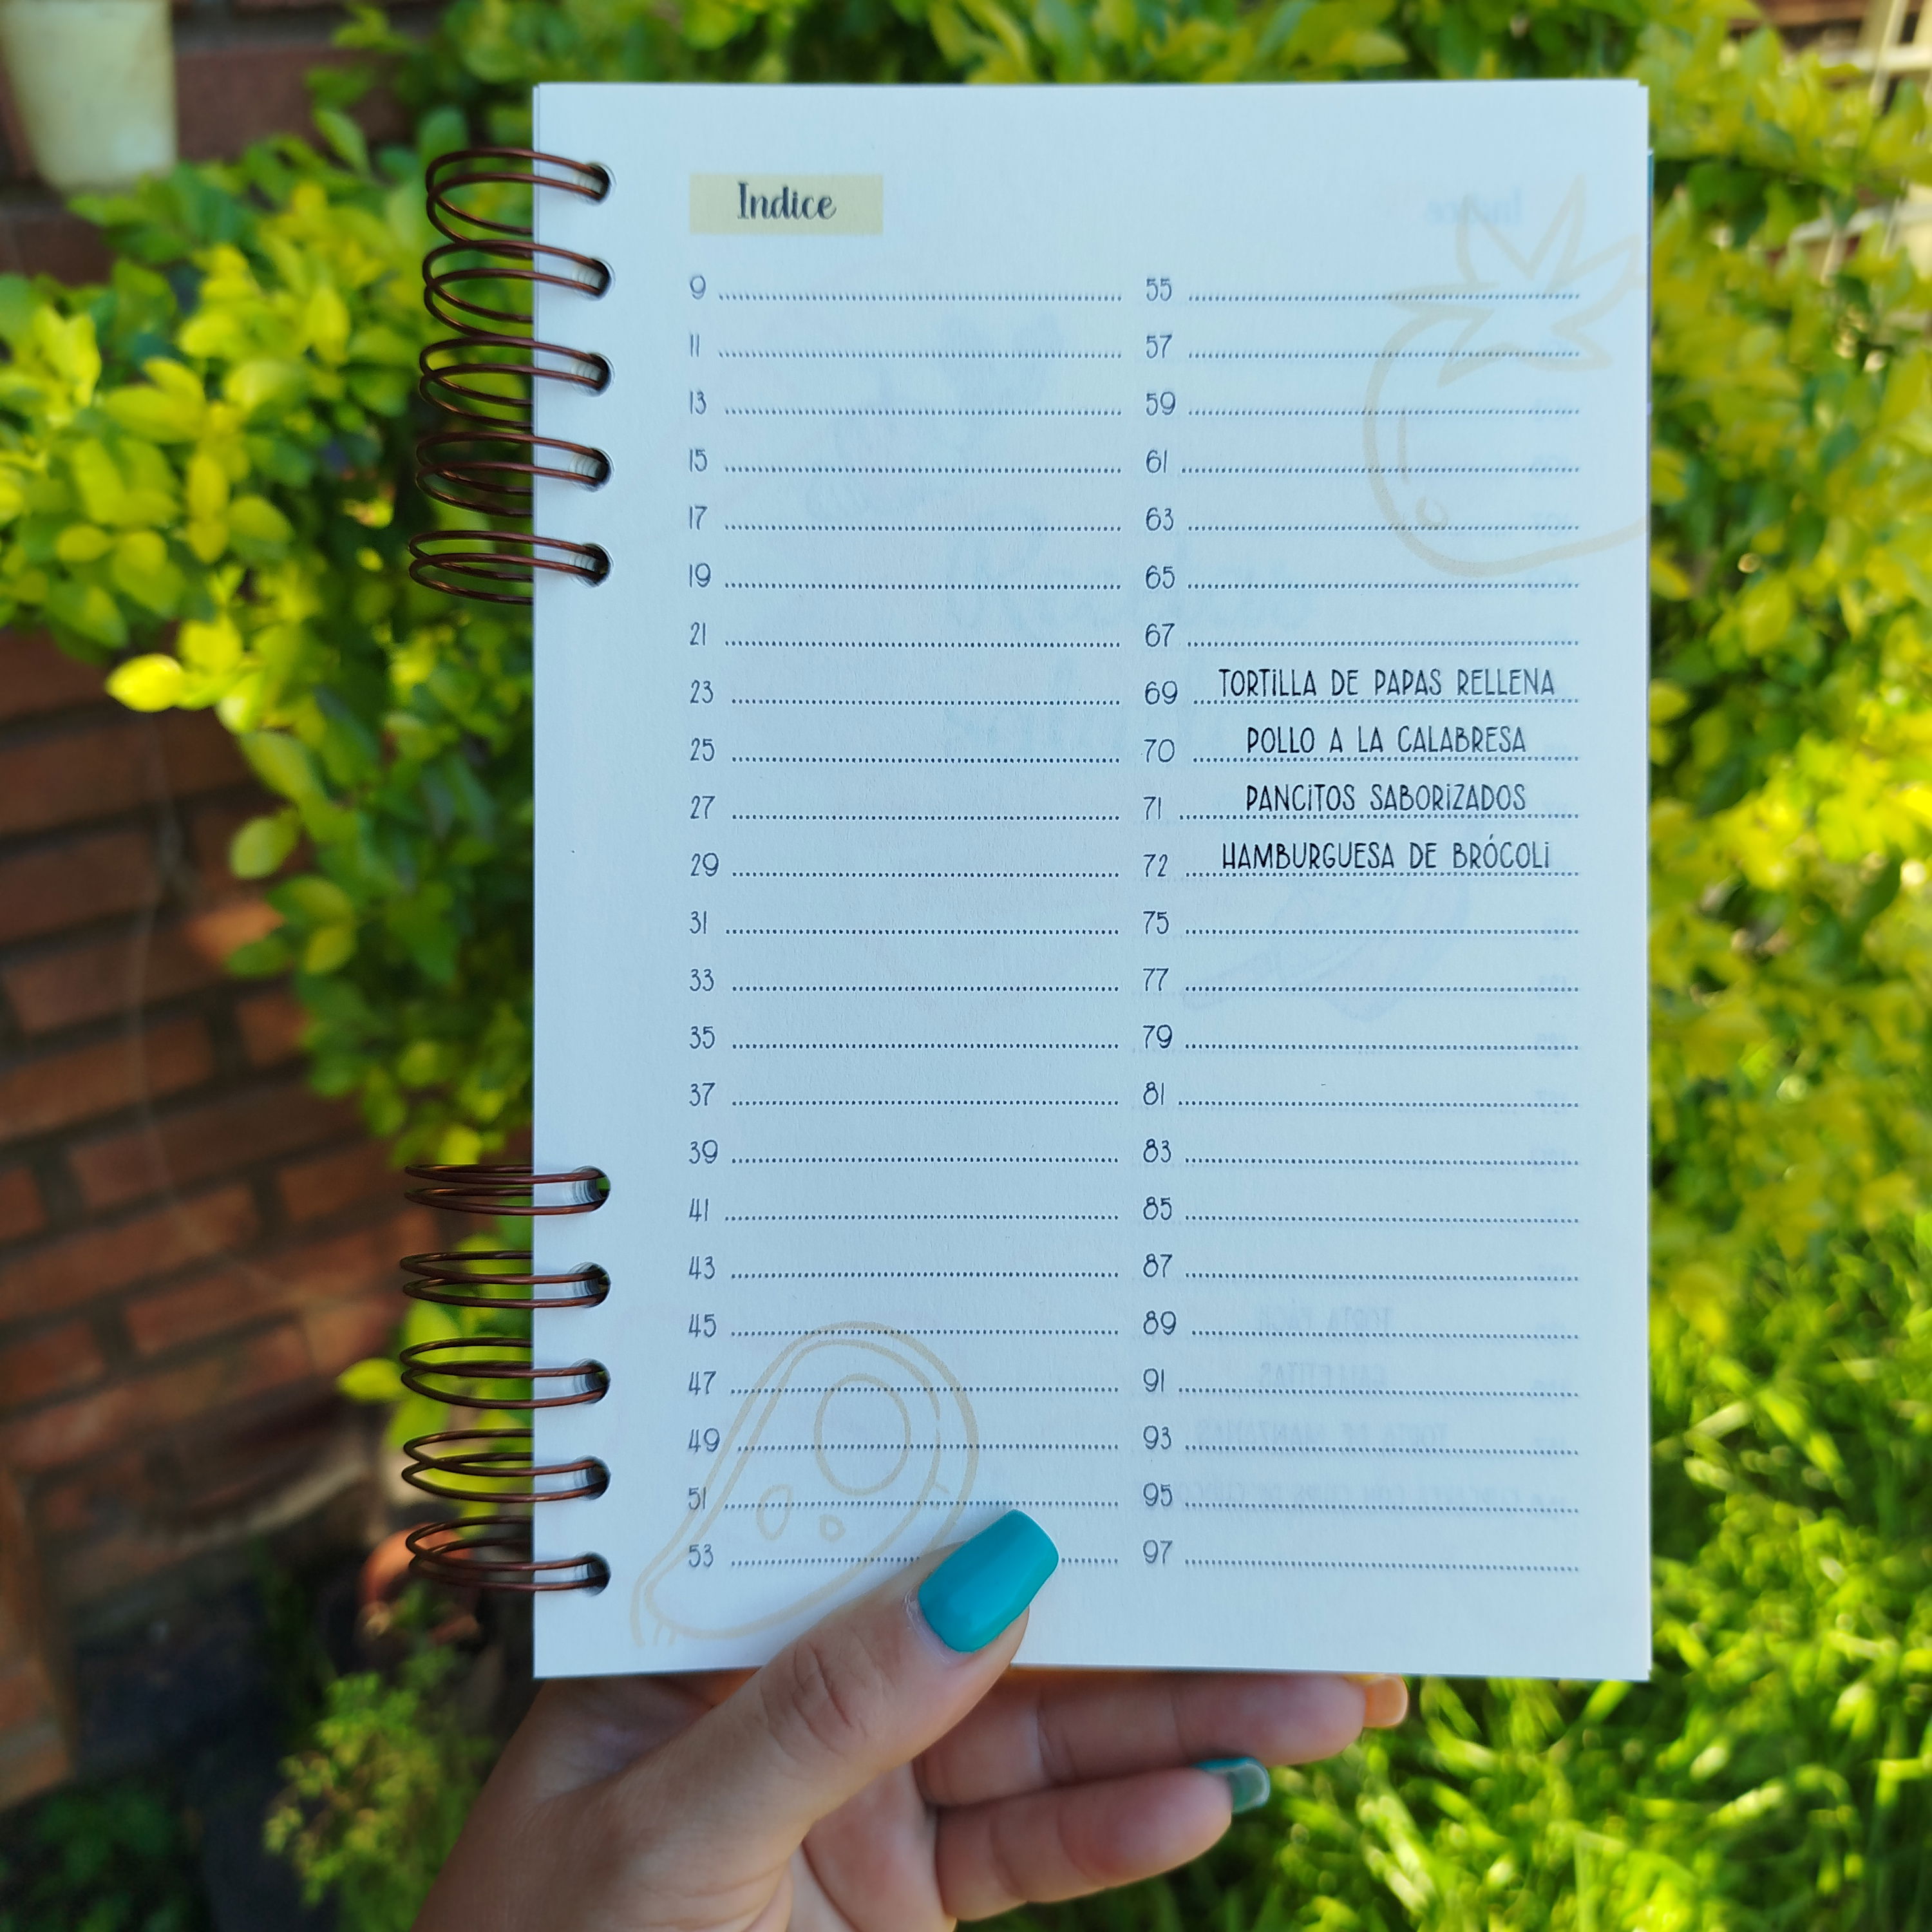 Indice
9
11
13
15
17
19
21
23
25
27
29
31
33
35
37
39
41
43
45
47
49
51
53
55
57
59
61
63
65
67
69 TORTILLA DE PAPAS RELLENA
70 POLLO A LA CALABRESA
71 PANCITOS SABORIZADOS
72 HAMBURGUESA DE BRÓCOLI
75
77
79
81
83
85
87
89
91
93
95
97